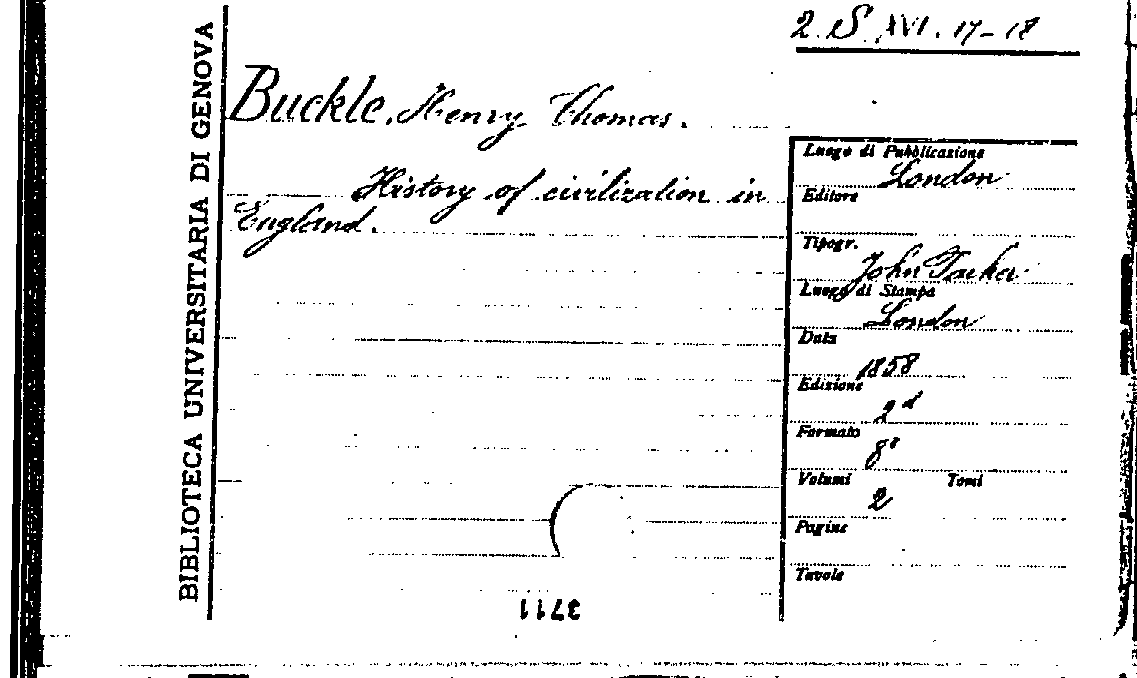 2 S XVI. 17-18
BIBLIOTECA UNIVERSITARIA DI GENOVA
Buckle, Henry Thomas.
History of civilization in
England.
Luogo di Pubblicazione
London
Editore
Tipogr.
John Parker
Luogo di Stampa
London
Data
1858
Edizione
2d
Formato
8°
Volumi Tomi
2
Pagine
Tavole
3711